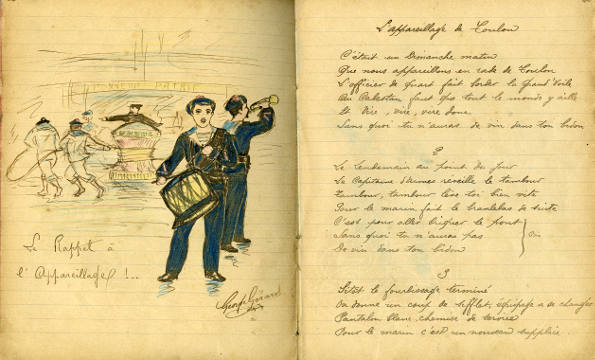 Le Rappel à
l'Appareillage !..
L'appareillage de Toulon
C'était un Dimanche matin
Que nous appareillons en rade de Toulon
L'officier de quart fait border la Grand Voile
Au Cabestan faut que tout le monde y aille
Et Vire, vire, vire donc
Sans quoi tu n'auras de vin dans ton bidon
2
Le lendemain au point du jour
Le Capitaine d'armes réveille le tambour
Tambour, tambour lève toi bien vite
Pour le marin fait le branlebas de suite
C'est pour aller briquer le pont
Sans quoi tu n'auras pas
De vin dans ton bidon
Bis
3
Sitôt le fourbissage terminé
On donne un coup de sifflet, équipage a se changer
Pantalon blanc, chemise de service
Pour le marin c'est un nouveau supplice